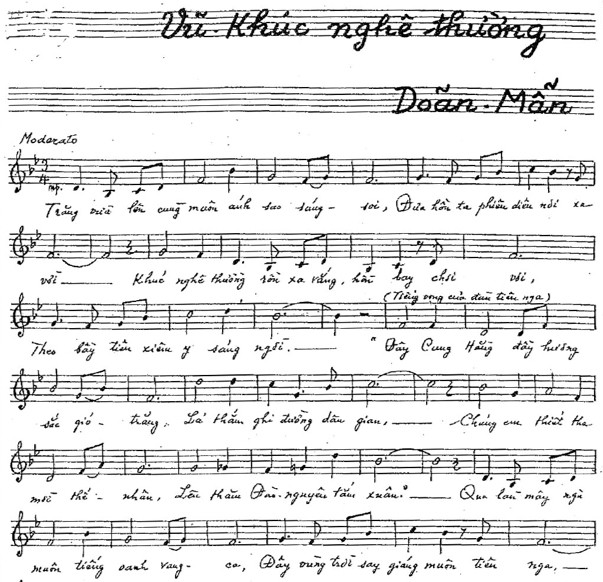 Vũ-Khúc nghê thường
Doãn-Mẫn
Moderato
mp.
Trăng vừa lên cung muôn ánh sao sáng- soi, Đưa hồn ta phiêu diêu nơi xa
vời Khúc nghê thường rền xa vắng, hồn bay chơi vơi,
(Tiếng vong của đàn tiên nga)
Theo bầy tiên xiêm y sáng ngời. "Đây Cung Hằng đầy hương
sắc gió- trăng. Lá thắm ghi đường dân gian, Chúng em thiết tha
mời thế- nhân, Lên thăm Đào-nguyên tắm xuân." Qua làn mây ngà
muôn tiếng oanh vang- ca, Đây vùng trời say giáng muôn tiên nga,